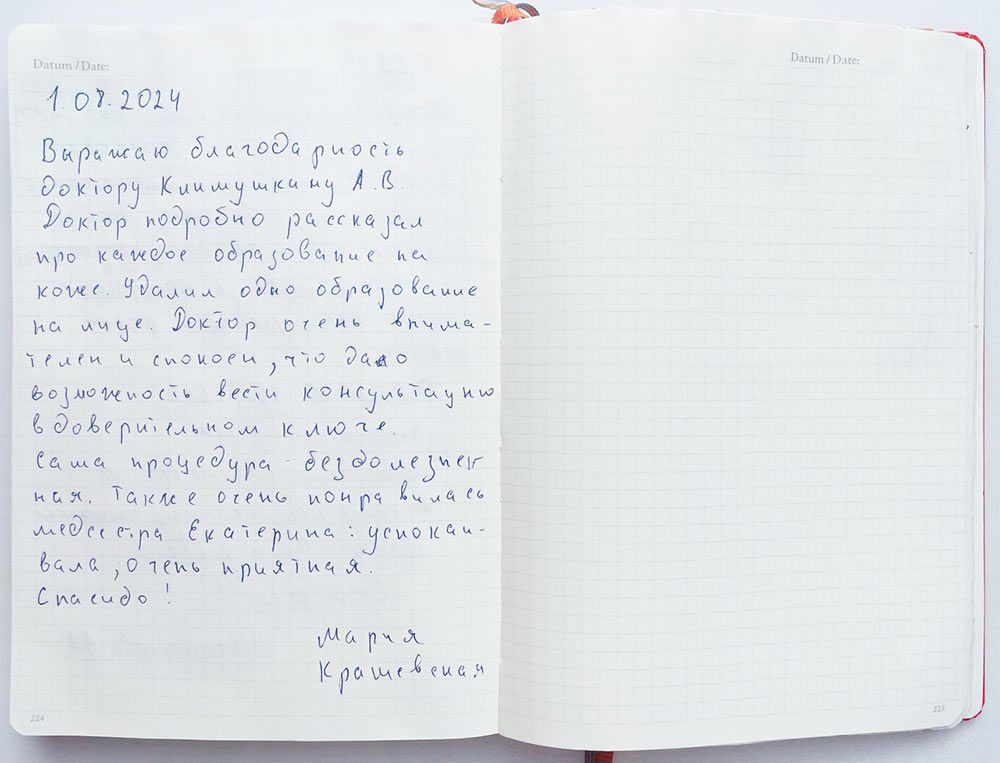 Datum / Date:
1.08.2024
Выражаю благодарность
доктору Климушкину А.В.
Доктор подробно рассказал
про каждое образование на
коже. Удалил одно образование
на лице. Доктор очень внима-
телен и спокоен, что дало
возможность вести консультацию
в доверительном ключе.
Сама процедура - безболезнен
ная. Также очень понравилась
медсестра Екатерина: успокаи-
вала, очень приятная.
Спасибо!
Мария
Крашевская
224
Datum / Date:
225